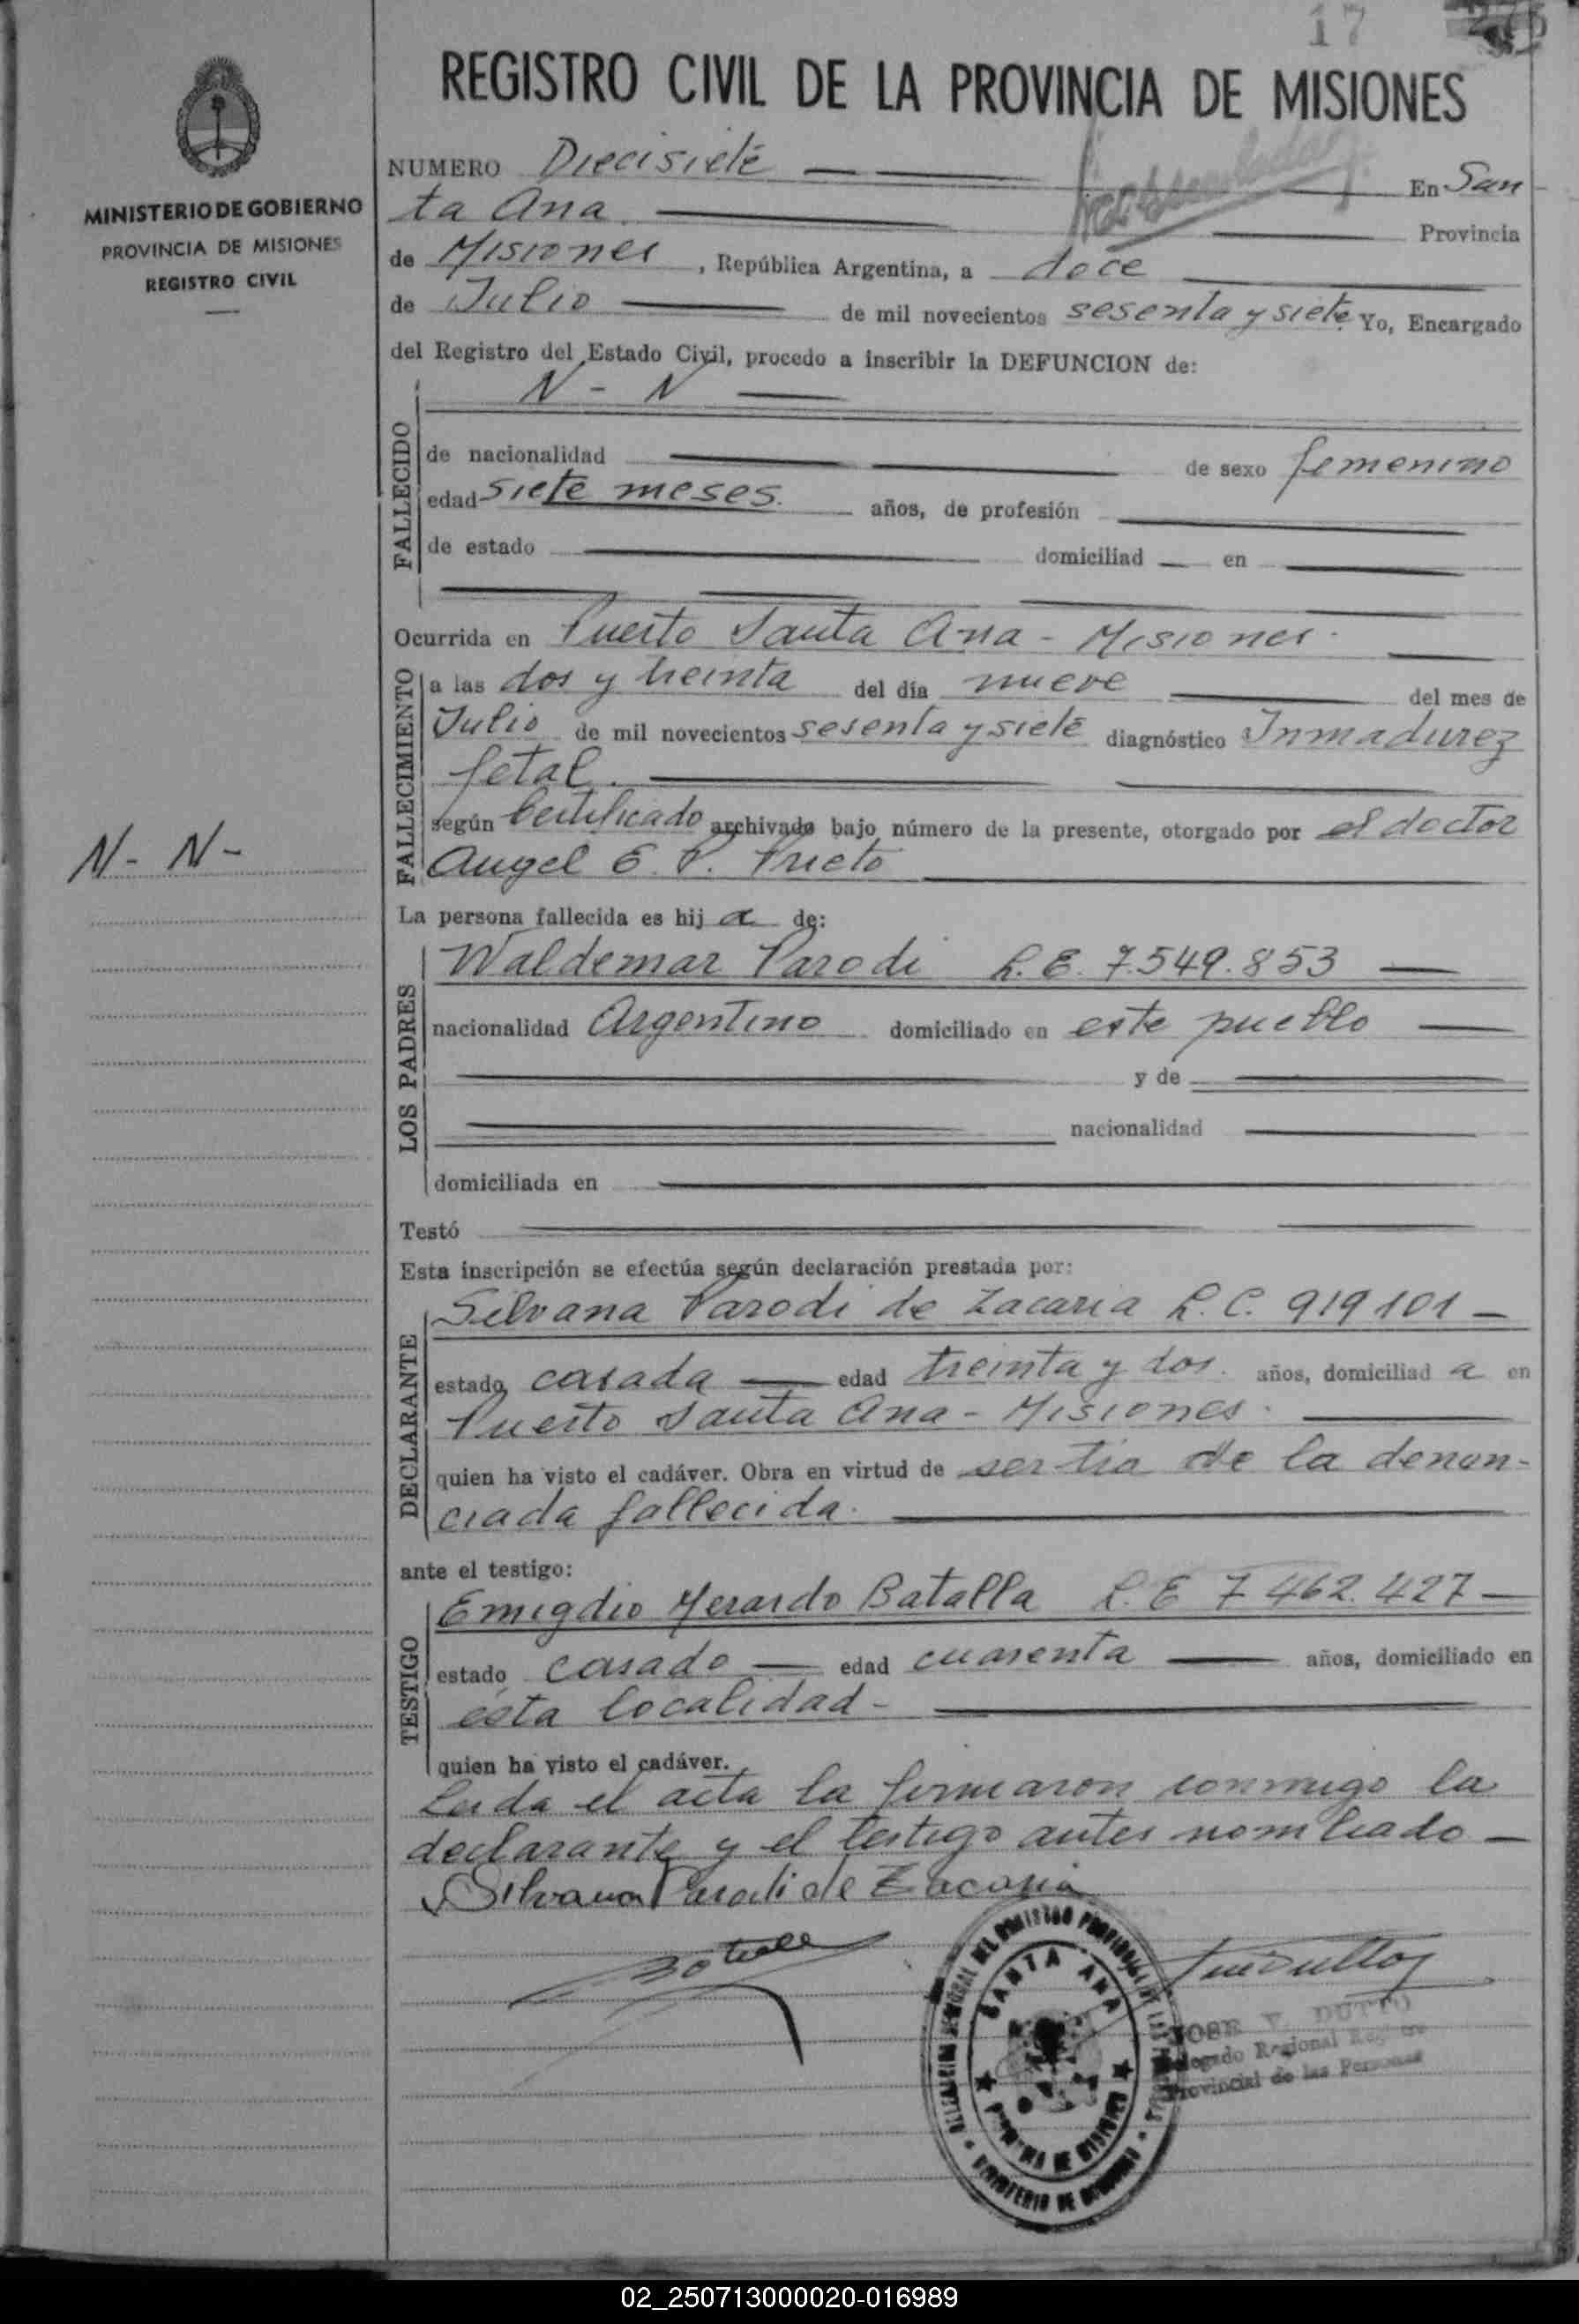 17
REGISTRO CIVIL DE LA PROVINCIA DE MISIONES
MINISTERIO DE GOBIERNO
PROVINCIA DE MISIONES
REGISTRO CIVIL
NUMERO Diecisiete En San
ta Ana Provincia
de Misiones, República Argentina, a doce
de Julio de mil novecientos sesenta y siete Yo, Encargado
del Registro del Estado Civil, procedo a inscribir la DEFUNCION de:
N - N
FALLECIDO
de nacionalidad de sexo femenino
edad siete meses. años, de profesión
de estado domiciliad en
Ocurrida en Puerto Santa Ana - Misiones.
FALLECIMIENTO
a las dos y treinta del día nueve del mes de
Julio de mil novecientos sesenta y siete diagnóstico Inmadurez
fetal.
según Certificado archivado bajo número de la presente, otorgado por el doctor
Angel E. P. Prieto
N- N-
La persona fallecida es hija de:
LOS PADRES
Waldemar Parodi L.E. 7.549.853
nacionalidad Argentino domiciliado en este pueblo
y de
nacionalidad
domiciliada en
Testó
Esta inscripción se efectúa según declaración prestada por:
DECLARANTE
Silvana Parodi de Zacaria L.C. 919101
estado casada edad treinta y dos. años, domiciliada en
Puerto Santa Ana - Misiones.
quien ha visto el cadáver. Obra en virtud de ser tia de la denun-
ciada fallecida.
ante el testigo:
TESTIGO
Emigdio Gerardo Batalla L.E 7.462.427
estado casado edad cuarenta años, domiciliado en
esta localidad-
quien ha visto el cadáver.
Leida el acta la firmaron conmigo la
declarante y el testigo antes nombrado
Silvana Parodi de Zacaria
Batalla
SANTA ANA
PROVINCIA DE MISIONES
MINISTERIO DE GOBIERNO
JOSE V. DUTTO
Delegado Regional Registro
Provincial de las Personas
02_250713000020-016989